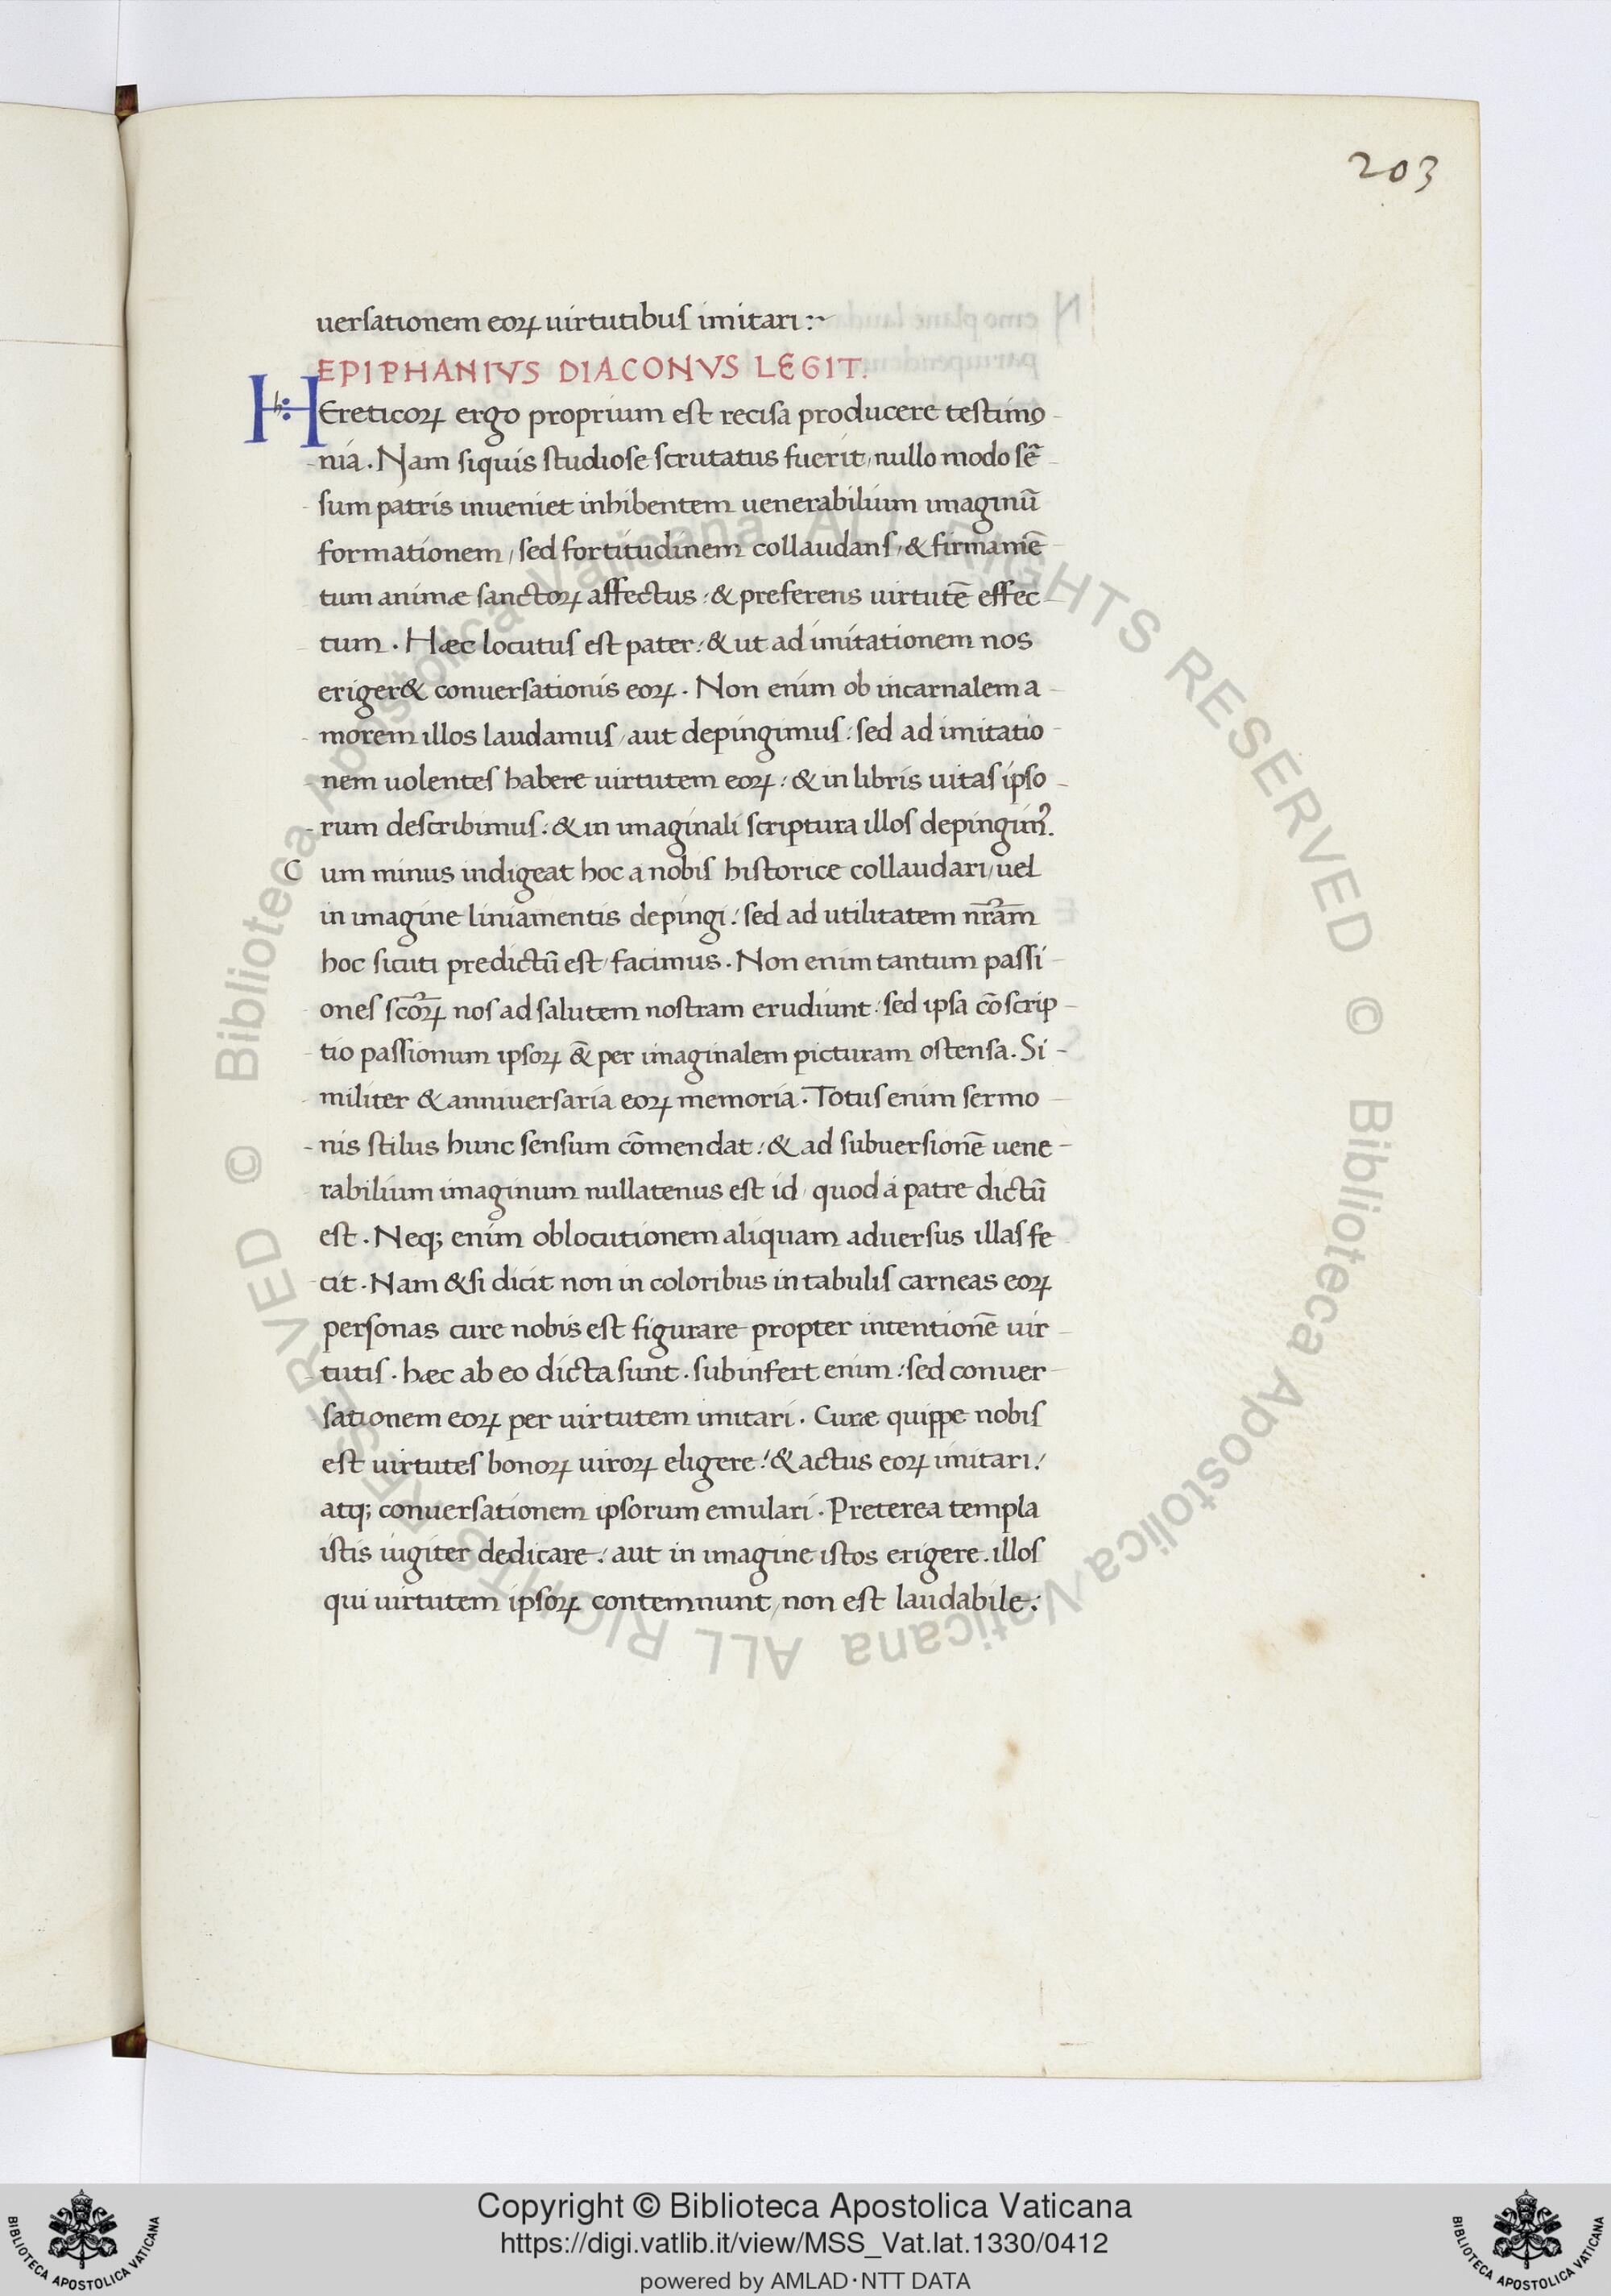 203
uersationem eoꝝ uirtutibus imitari :~
EPIPHANIVS DIACONVS LEGIT.
HEreticoꝝ ergo proprium est recisa producere testimo-
nia. Nam siquis studiose scrutatus fuerit, nullo modo sē
sum patris inueniet inhibentem uenerabilium imaginū
formationem, sed fortitudinem collaudans, & firmamē
tum animæ sanctoꝝ affectus: & preferens uirtutē effec-
tum. Hæc locutus est pater: & ut ad imitationem nos
eriger& conuersationis eoꝝ. Non enim ob incarnalem a-
morem illos laudamus, aut depingimus: sed ad imitatio-
nem uolentes habere uirtutem eoꝝ: & in libris uitas ipso-
rum describimus: & in imaginali scriptura illos depingimꝰ.
Cum minus indigeat hoc a nobis historice collaudari, uel
in imagine liniamentis depingi: sed ad utilitatem nr̄am
hoc sicuti predictū est, facimus. Non enim tantum passi-
ones sc̄oꝝ nos ad salutem nostram erudiunt: sed ipsa cōscrip-
tio passionum ipsoꝝ &̄ per imaginalem picturam ostensa. Si-
militer & anniuersaria eoꝝ memoria. Totus enim sermo
nis stilus hunc sensum cōmendat: & ad subuersionē uene-
rabilium imaginum nullatenus est id, quod á patre dictū
est. Neq; enim oblocutionem aliquam aduersus illas fe
cit. Nam &si dicit non in coloribus in tabulis carneas eoꝝ
personas cure nobis est figurare propter intentionē uir-
tutis. hæc ab eo dicta sunt. subinfert enim: sed conuer-
sationem eoꝝ per uirtutem imitari. Curæ quippe nobis
est uirtutes bonoꝝ uiroꝝ eligere: & actus eoꝝ imitari:
atq; conuersationem ipsorum emulari. Preterea templa
istis iugiter dedicare: aut in imagine istos erigere. illos
qui uirtutem ipsoꝝ contemnunt, non est laudabile:
© Biblioteca Apostolica Vaticana ALL RIGHTS RESERVED
© Biblioteca Apostolica Vaticana ALL RIGHTS RESERVED
Copyright © Biblioteca Apostolica Vaticana
https://digi.vatlib.it/view/MSS_Vat.lat.1330/0412
powered by AMLAD·NTT DATA
BIBLIOTECA APOSTOLICA VATICANA
BIBLIOTECA APOSTOLICA VATICANA